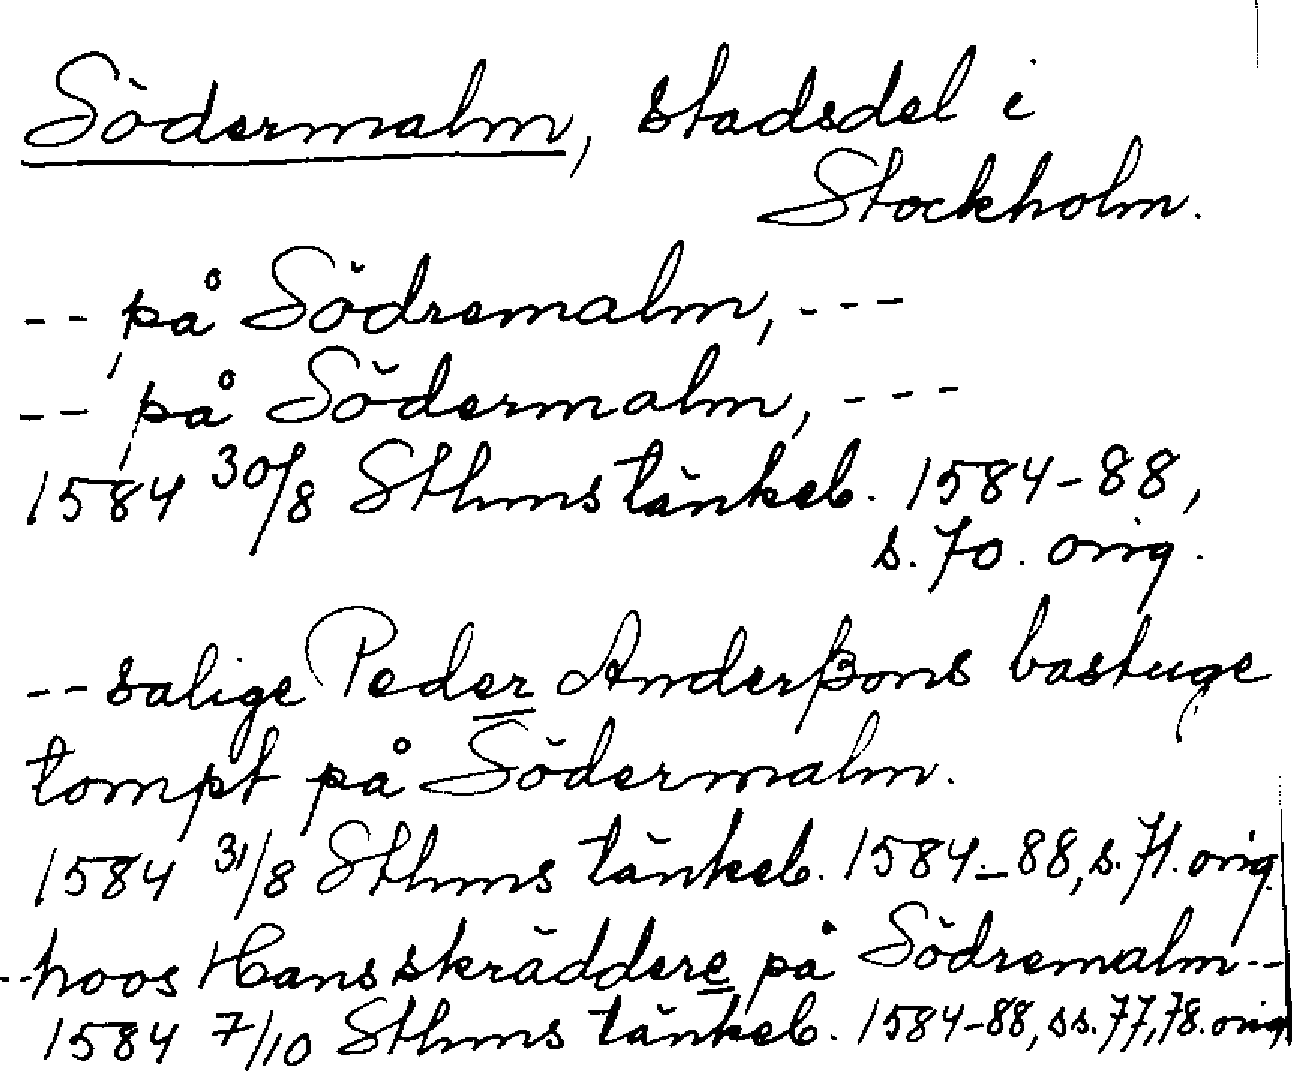 Södermalm, stadsdel i
Stockholm.
-- på Södremalm, ---
-- på Södermalm, ---
1584 30/8 Sthms tänkeb. 1584-88,
s. 70. orig.
-- salige Peder Anderßons bastuge
tompt på Södermalm.
1584 31/8 Sthms tänkeb. 1584-88, s. 71. orig.
-- hoos Hans skräddere på Södremalm --
1584 7/10 Sthms tänkeb. 1584-88, ss. 77, 78. orig.